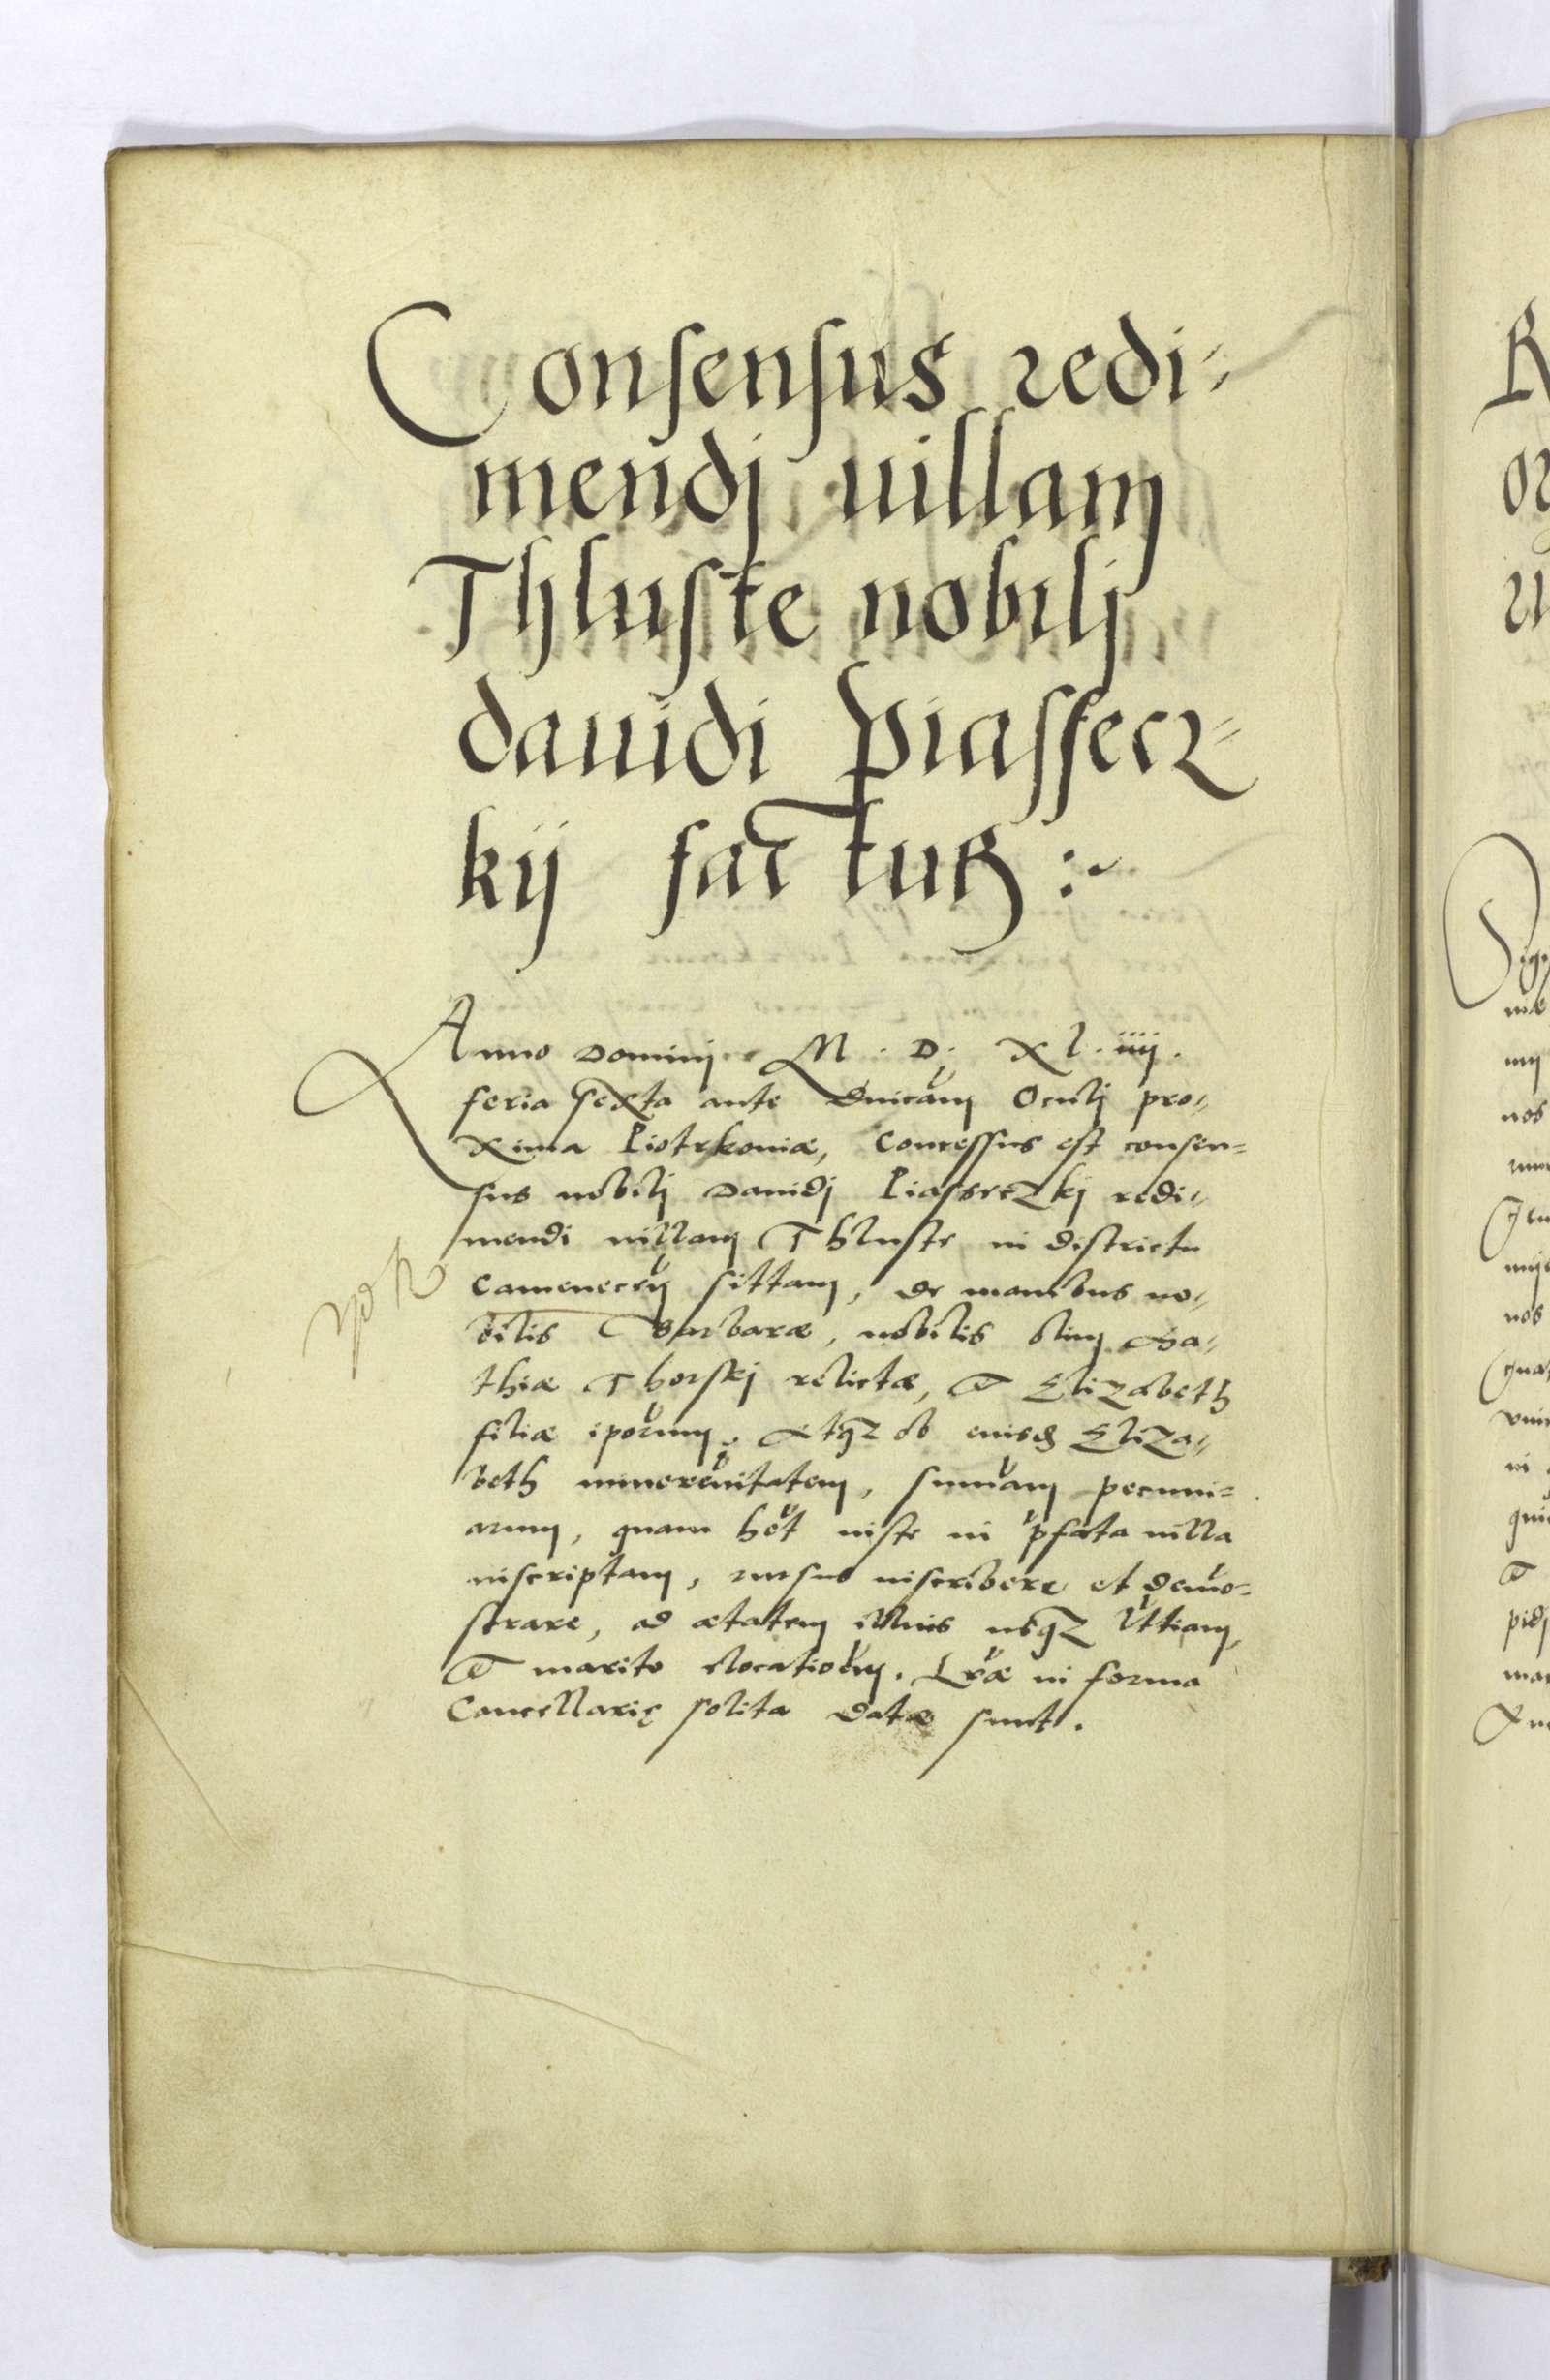 Consensus redi-
mendj uillam
Thluste nobilj
dauidi piassecz-
kij factus :~
Anno Dominj M . D . X L . iiij .
feria sexta ante Dnicam Oculj pro-
xima Piotrkoniæ, Concessus est consen-
sus nobilj Dauidj Piasseczkj redi-
mendi uillam Thluste in districtu
Camenecen sittam, de manibus no-
bilis Barbaræ, nobilis olim Ma-
thiæ Thorskj relictæ, et Elizabeth
filiæ iporum. Atqz ob euisd Eliza-
beth minorennitatem, summam pecuni-
arum, quam het iuste in pfata uilla
inscriptam, rursus inscribere et demo-
strare, ad ætatem illius usqz lttiam,
et marito elocationem. Lræ in forma
Cancellarię solita datæ sunt.